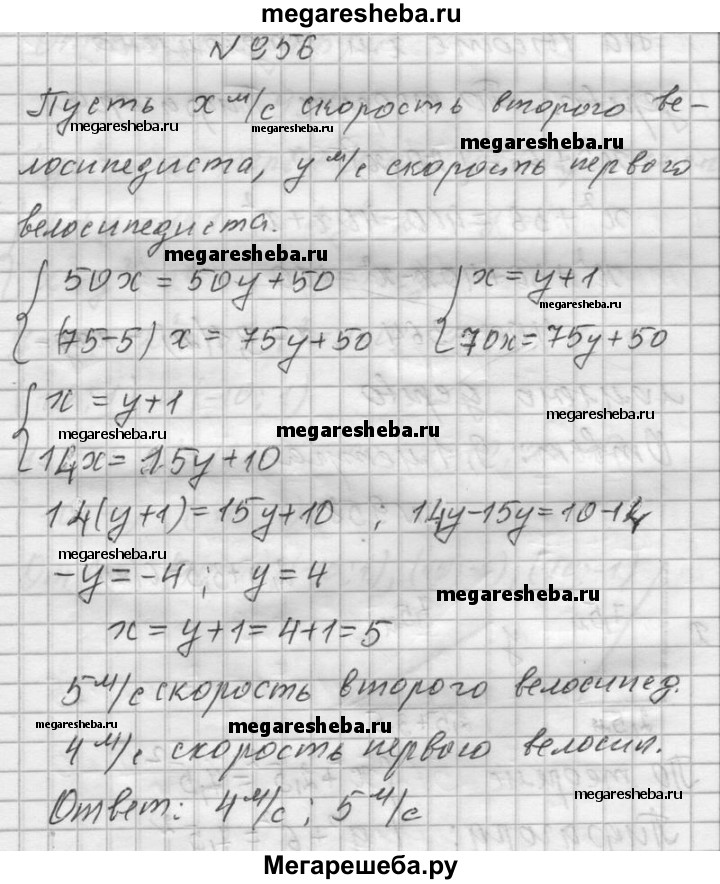 megaresheba.ru
№ 956
Пусть x м/с скорость второго ве-
megaresheba.ru megaresheba.ru megaresheba.ru
лосипедиста, y м/с скорость первого
велосипедиста.
megaresheba.ru
{ 50x = 50y + 50 { x = y + 1
megaresheba.ru
(75-5) x = 75y + 50 70x = 75y + 50
{ x = y + 1
megaresheba.ru megaresheba.ru megaresheba.ru
14x = 15y + 10
14(y+1) = 15y + 10 ; 14y - 15y = 10 - 14
megaresheba.ru
-y = -4 ; y = 4
megaresheba.ru
x = y + 1 = 4 + 1 = 5
5 м/с скорость второго велосипед.
megaresheba.ru megaresheba.ru
4 м/с скорость первого велосип.
Ответ: 4 м/с ; 5 м/с
megaresheba.ru
Мегарешеба.ру